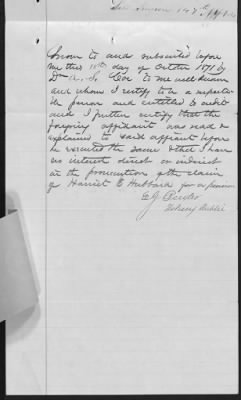 Sworn to and subscribed before
me this 10th day of October 1891 by
Dr. A. S. Coe to me well known
and whom I certify to be a respectable
person and entitled to credit
and I further certify that the
foregoing affidavit was read &
explained to said affiant before
he executed the same & that I have
no interest direct or indirect
in the prosecution of the claim
of Harriet E Hubbard for a pension
Notary Public